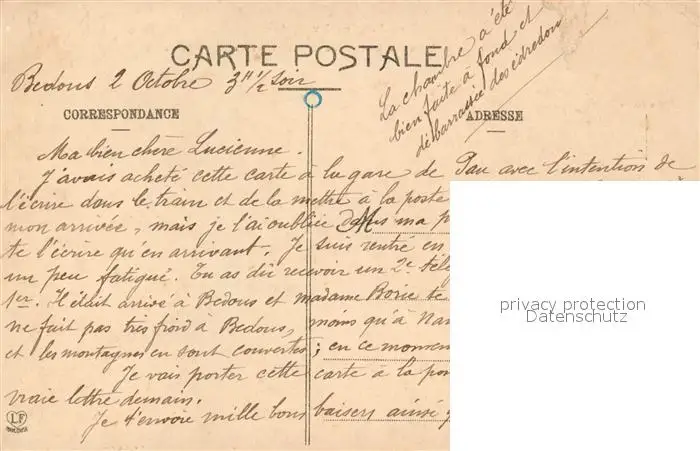 CARTE POSTALE
Bedous 2 Octobre 3H 1/2 soir
La chambre a été
bien faite à fond et
débarrassée des édredon
CORRESPONDANCE
ADRESSE
Ma bien chère Lucienne.
J'avais acheté cette carte à la gare de Pau avec l'intention de
l'écrire dans le train et de la mettre à la poste
mon arrivée, mais je l'ai oubliée dans ma p
te l'écrire qu'en arrivant. Je suis rentré en
un peu fatigué. Tu as dû recevoir un 2e télé
1er. Il était arrivé à Bedous et madame Borie te
ne fait pas très froid à Bedous, moins qu'à Nan
et les montagnes en sont couvertes ; en ce momen
Je vais porter cette carte à la pos
vraie lettre demain.
Je t'envoie mille bons baisers ainsi
LF
privacy protection
Datenschutz